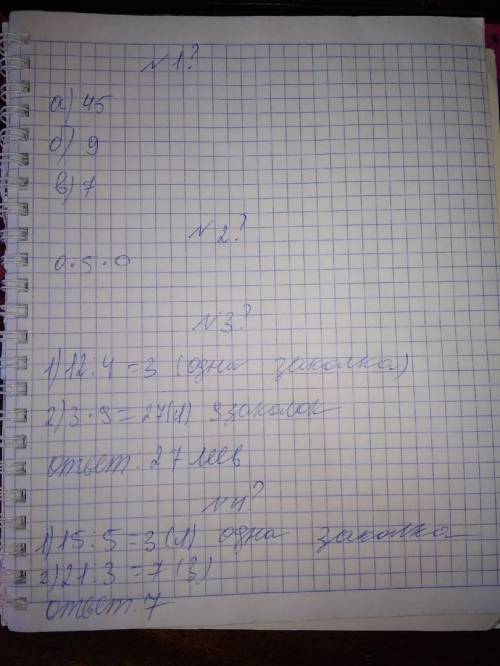 №1?
а) 45
б) 9
в) 7
№2?
0·5·0
№3?
1) 12:4=3 (одна заколка)
2) 3·9=27(л) 9 заколок
ответ: 27 лев
№4?
1) 15:5=3(л) одна заколка
2) 21:3=7(з)
ответ: 7